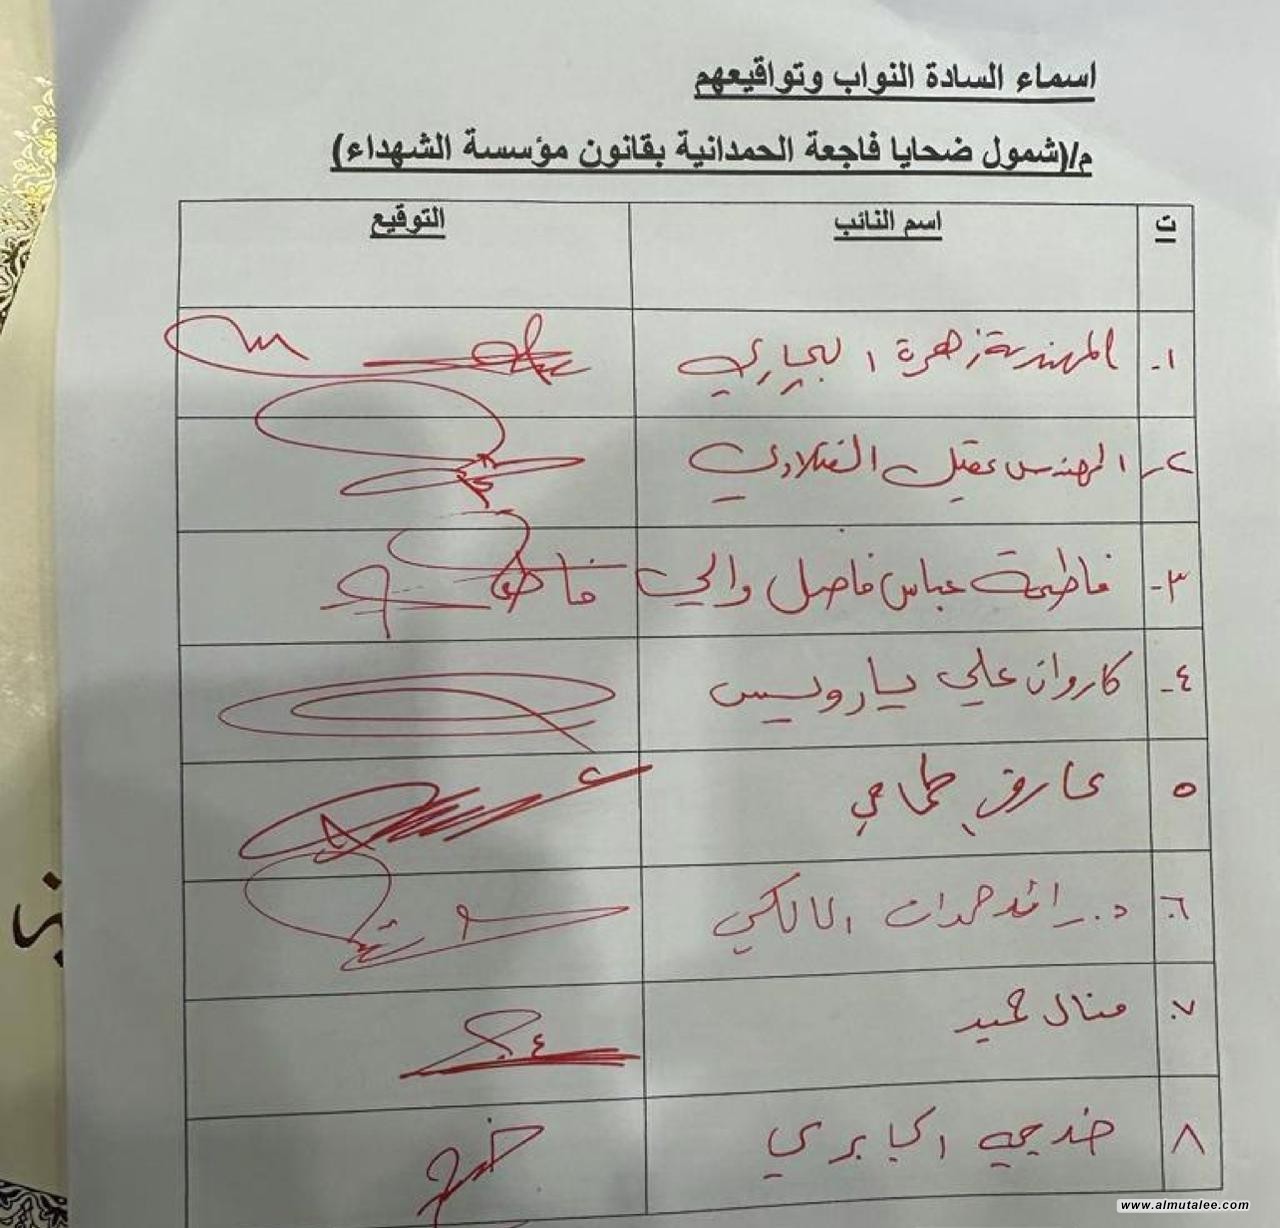 اسماء السادة النواب وتواقيعهم
م/(شمول ضحايا فاجعة الحمدانية بقانون مؤسسة الشهداء)
ت اسم النائب التوقيع
١- المهندسة زهرة البجاري
٢- المهندس عقيل الفتلاوي
٣- فاطمة عباس فاضل والي
٤- كاروان علي يارويس
٥ عارف حمامي
٦. د. رائد حمدان المالكي
٧. منال حميد
٨ خديجة الجابري
www.almutalee.com